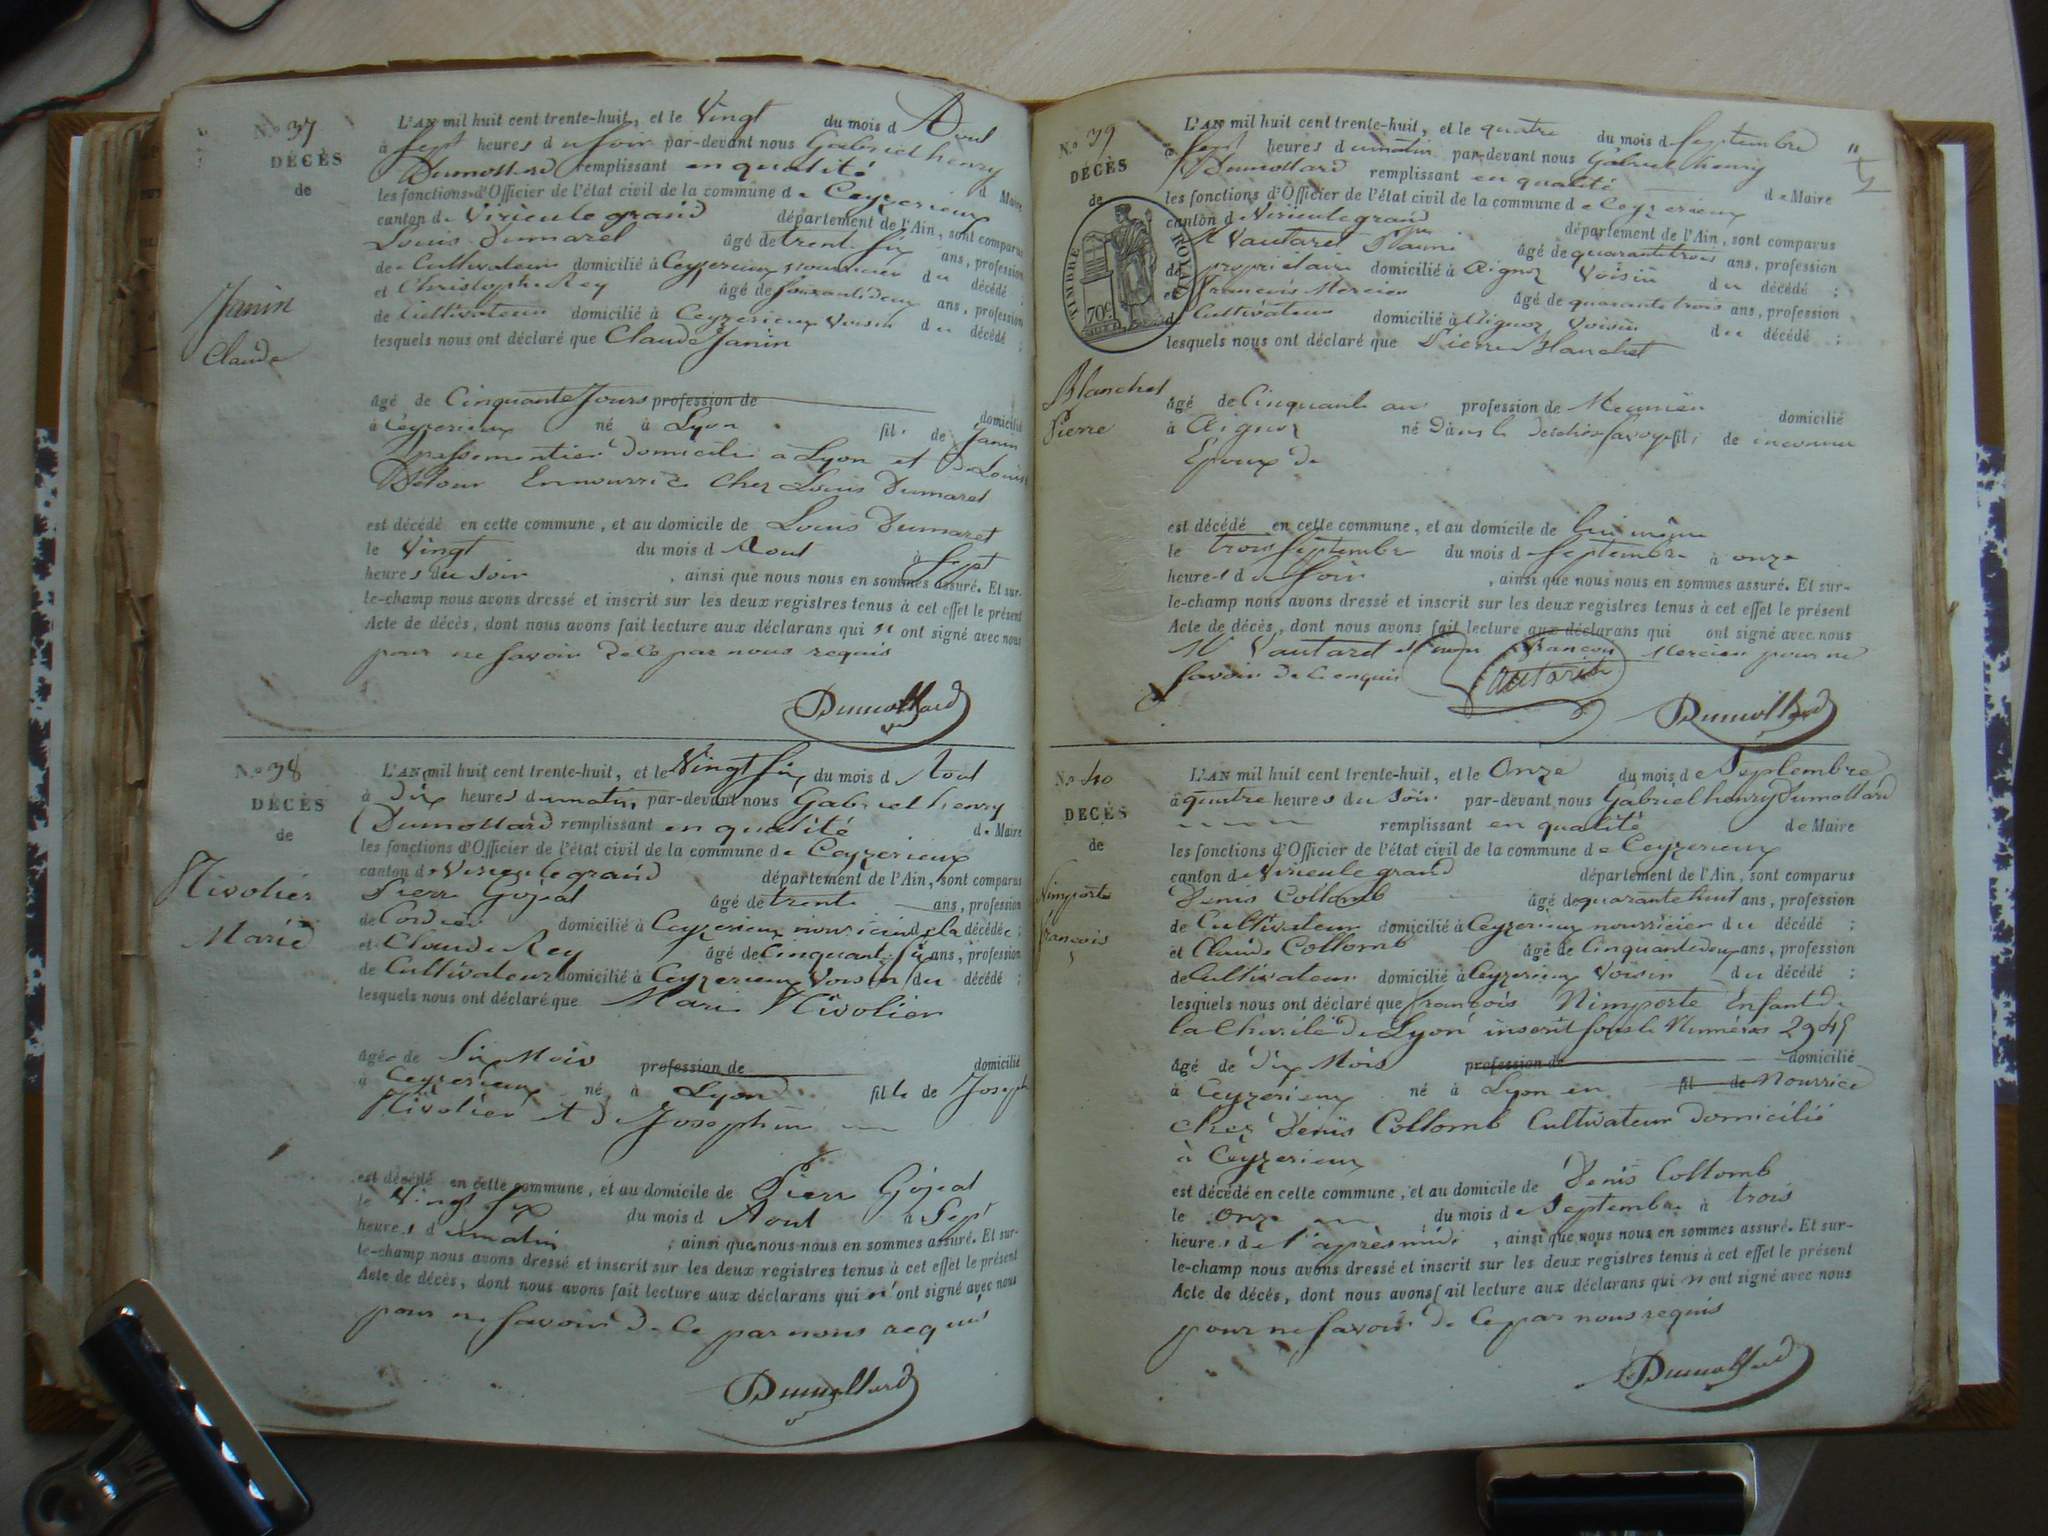 N.º 37
DÉCÈS
de
Janin
Claude
L'AN mil huit cent trente-huit, et le Vingt du mois d Aout
à sept heures du soir par-devant nous Gabriel henry
Dumollard remplissant en qualité d Maire
les fonctions d'Officier de l'état civil de la commune de Ceyzerieux
canton de Virieu le grand département de l'Ain, sont comparus
Louis Dumaret âgé de trente six ans, profession
de Cultivateur domicilié à Ceyzerieux nourricier du décédé ;
et Christophe Rey âgé de soixante deux ans, profession
de Cultivateur domicilié à Ceyzerieux Voisin du décédé ;
lesquels nous ont déclaré que Claude Janin
âgé de Cinquante Jours profession de domicilié
à Ceyzerieux né à Lyon fil de Janin
passementier domicilié a Lyon et de Louise
en nourrice Chez Louis Dumaret
est décédé en cette commune, et au domicile de Louis Dumaret
le Vingt du mois d Aout à Sept
heures du soir , ainsi que nous nous en sommes assuré. Et sur-
le-champ nous avons dressé et inscrit sur les deux registres tenus à cet effet le présent
Acte de décès, dont nous avons fait lecture aux déclarans qui n ont signé avec nous
pour ne savoir de ce par nous requis
Dumollard
N.º 38
DÉCÈS
de
Nivolier
Marie
L'AN mil huit cent trente-huit, et le Vingt six du mois d Aout
à Dix heures du matin par-devant nous Gabriel henry
Dumollard remplissant en qualité de Maire
les fonctions d'Officier de l'état civil de la commune de Ceyzerieux
canton de Virieu le grand département de l'Ain, sont comparus
Pierre Gojeat âgé de trente ans, profession
de Cordier domicilié à Ceyzerieux nouricier de la décédée ;
et Claude Rey âgé de Cinquante six ans, profession
de Cultivateur domicilié à Ceyzerieux Voisin du décédé ;
lesquels nous ont déclaré que Marie Nivolier
âgé de Six Mois profession de domicilié
à Ceyzerieux né à Lyon fille de Joseph
Nivolier et de Josephine
est décédé en cette commune, et au domicile de Pierre Gojeat
le Vingt Six du mois d Aout à Sept
heures du matin ; ainsi que nous nous en sommes assuré. Et sur-
le-champ nous avons dressé et inscrit sur les deux registres tenus à cet effet le présent
Acte de décès, dont nous avons fait lecture aux déclarans qui n'ont signé avec nous
pour ne savoir de ce par nous requis
Dumollard
N.º 39
DÉCÈS
de
TIMBRE ROYAL
70c
Blanchet
Pierre
L'AN mil huit cent trente-huit, et le quatre du mois d Septembre
à sept heures du matin par-devant nous Gabriel henry
Dumollard remplissant en qualité de Maire
les fonctions d'Officier de l'état civil de la commune de Ceyzerieux
canton de Virieu le grand département de l'Ain, sont comparus
Vautaret âgé de quarante trois ans, profession
de propriétaire domicilié à Aignoz Voisin du décédé ;
et François Mercier âgé de quarante trois ans, profession
d Cultivateur domicilié à Aignoz Voisin du décédé ;
lesquels nous ont déclaré que Pierre Blanchet
âgé de Cinquante ans profession de Meunier domicilié
à Aignoz né Dans le fil de inconnu
Epoux de
est décédé en cette commune, et au domicile de lui même
le trois Septembre du mois d Septembre à onze
heures du Soir , ainsi que nous nous en sommes assuré. Et sur-
le-champ nous avons dressé et inscrit sur les deux registres tenus à cet effet le présent
Acte de décès, dont nous avons fait lecture aux déclarans qui ont signé avec nous
Vautaret et non François Mercier pour ne
savoir de ce enquis
Dumollard
N.º 40
DÉCÈS
de
Nimporte
françois
L'AN mil huit cent trente-huit, et le Onze du mois de Septembre
à quatre heures du Soir par-devant nous Gabriel henry Dumollard
remplissant en qualité de Maire
les fonctions d'Officier de l'état civil de la commune de Ceyzerieux
canton de Virieu le grand département de l'Ain, sont comparus
Denis Collomb âgé de quarante huit ans, profession
de Cultivateur domicilié à Ceyzerieux nourricier du décédé ;
et Claude Collomb âgé de Cinquante deux ans, profession
de Cultivateur domicilié à Ceyzerieux Voisin du décédé ;
lesquels nous ont déclaré que françois Nimporte Enfant de
la Charité de Lyon inscrit sous le Numéros 2945
âgé de dix Mois profession de domicilié
à Ceyzerieux né à Lyon en fil de Nourrice
chez Denis Collomb Cultivateur domicilié
à Ceyzerieux
est décédé en cette commune, et au domicile de Denis Collomb
le Onze du mois de Septembre à trois
heures de l'après midi , ainsi que nous nous en sommes assuré. Et sur-
le-champ nous avons dressé et inscrit sur les deux registres tenus à cet effet le présent
Acte de décès, dont nous avons fait lecture aux déclarans qui n ont signé avec nous
pour ne savoir de ce par nous requis
Dumollard